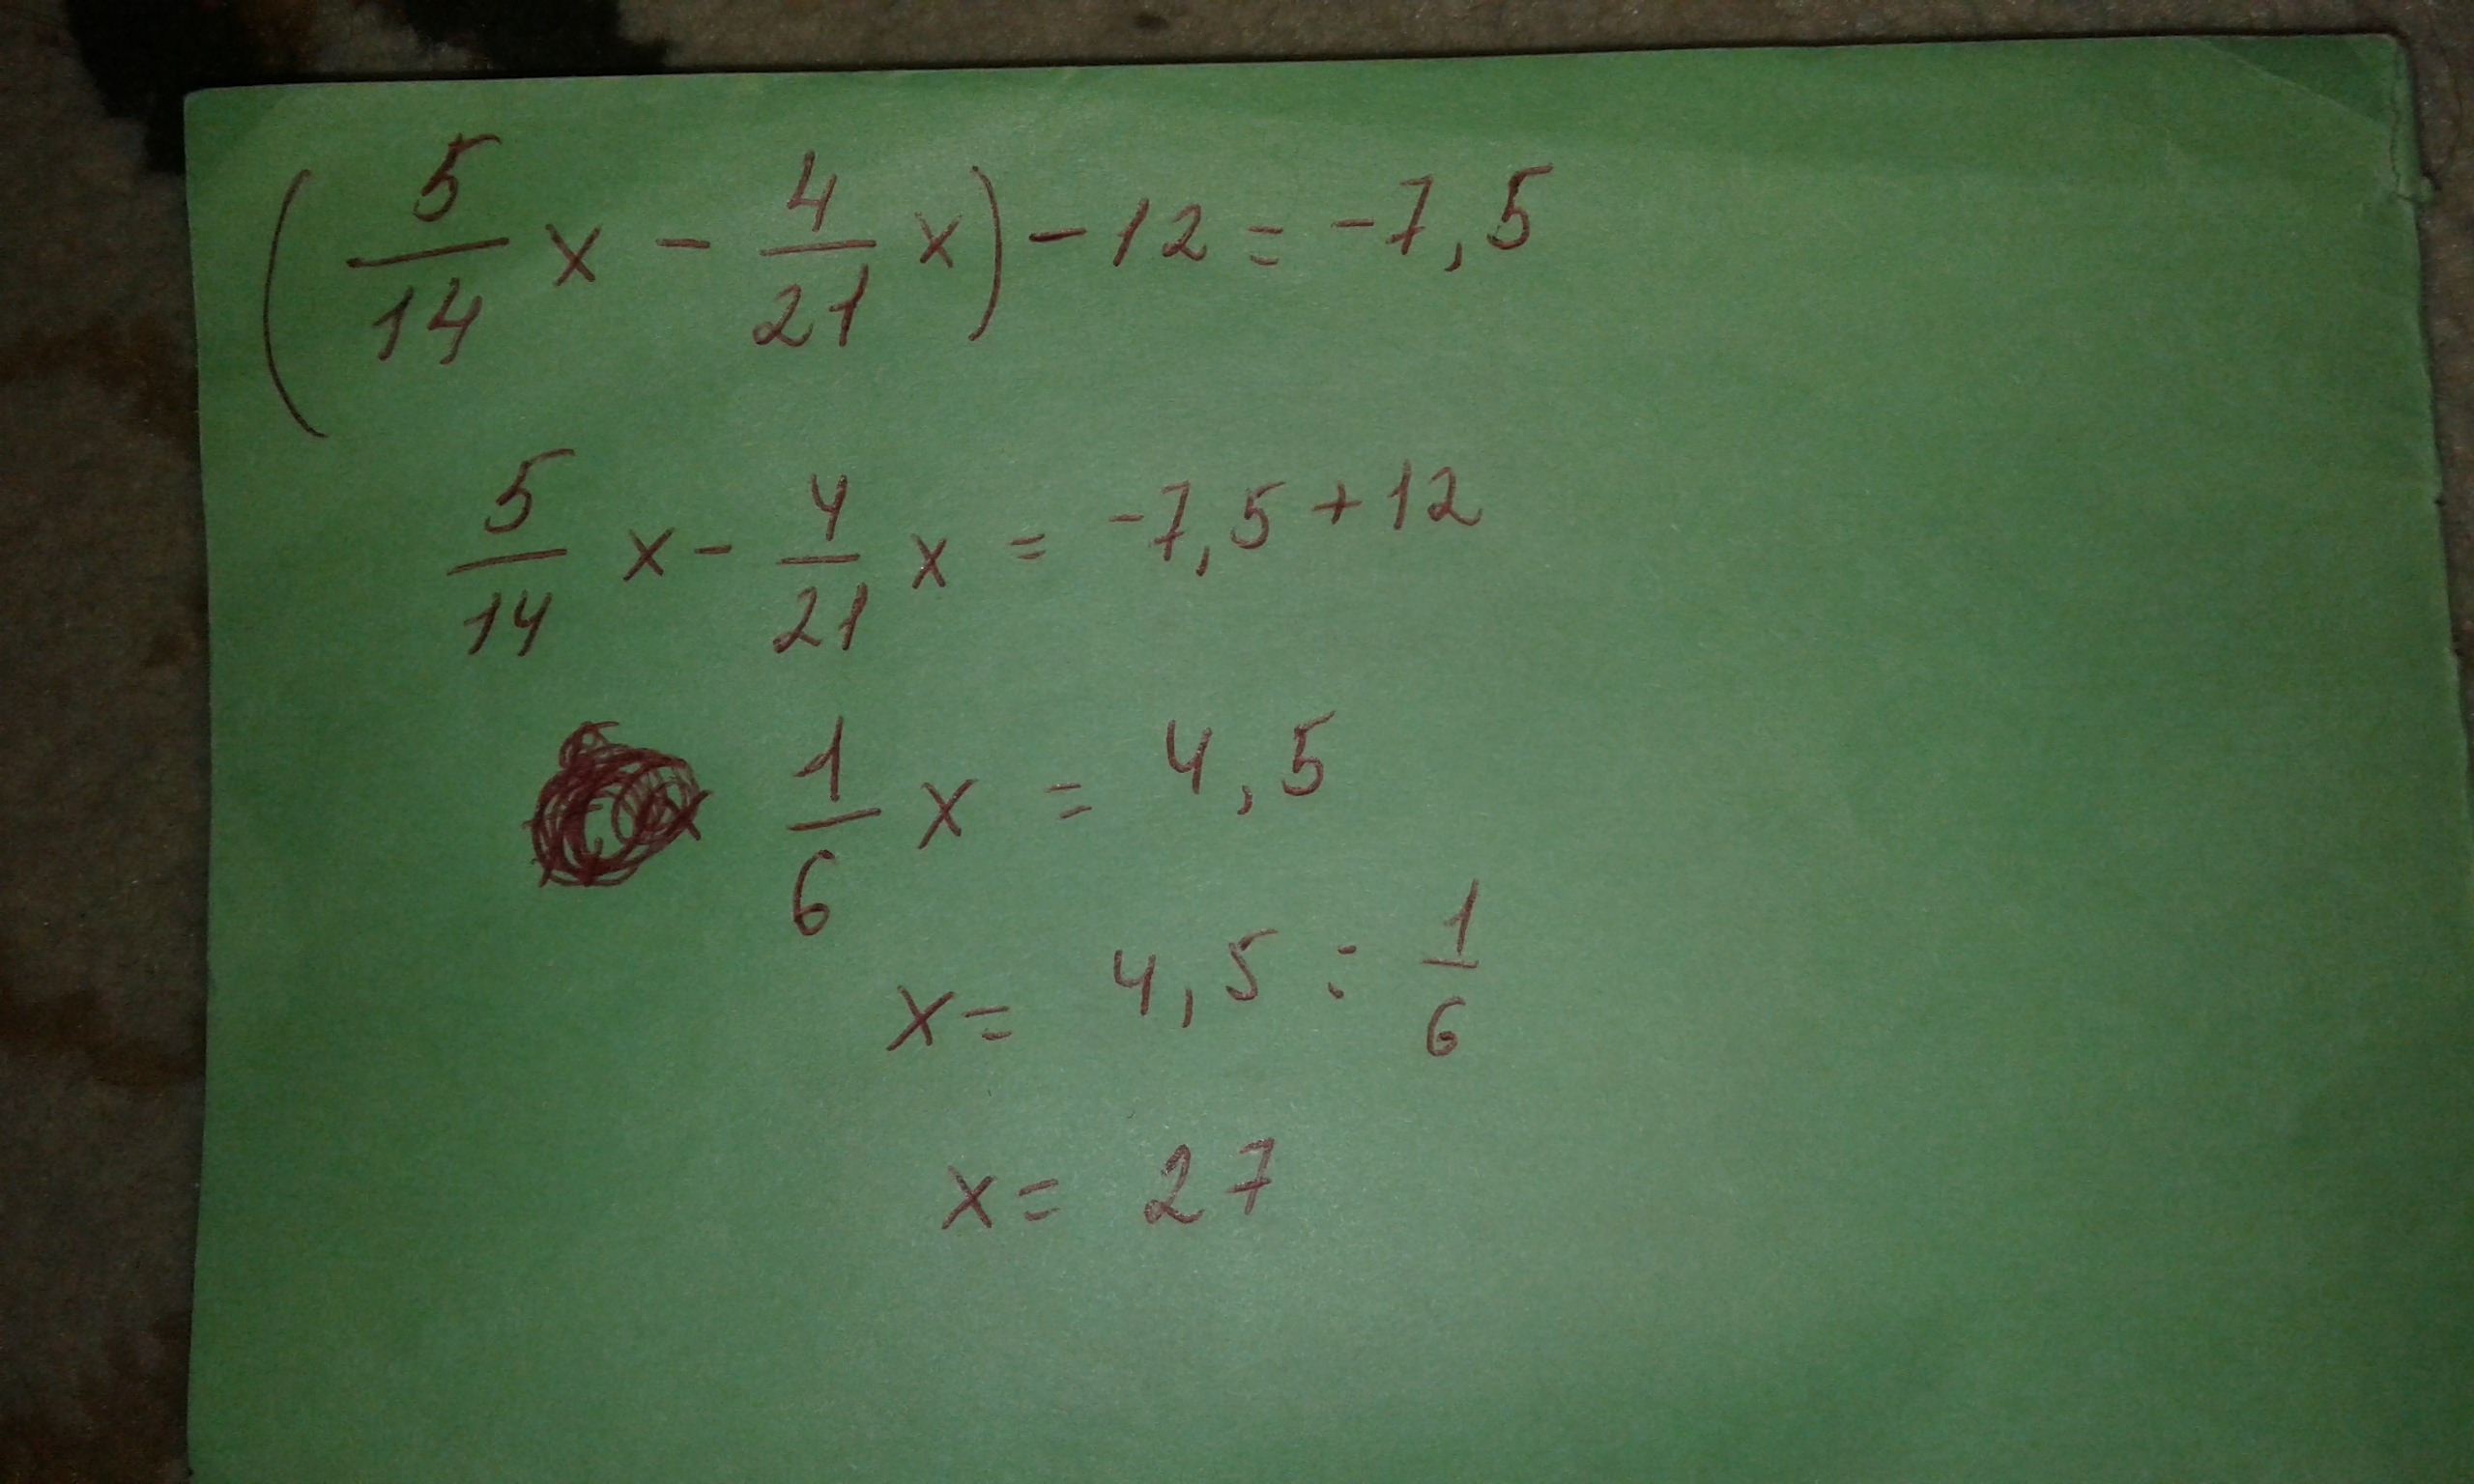 (5/14 x - 4/21 x) - 12 = -7,5
5/14 x - 4/21 x = -7,5 + 12
1/6 x = 4,5
x = 4,5 : 1/6
x = 27